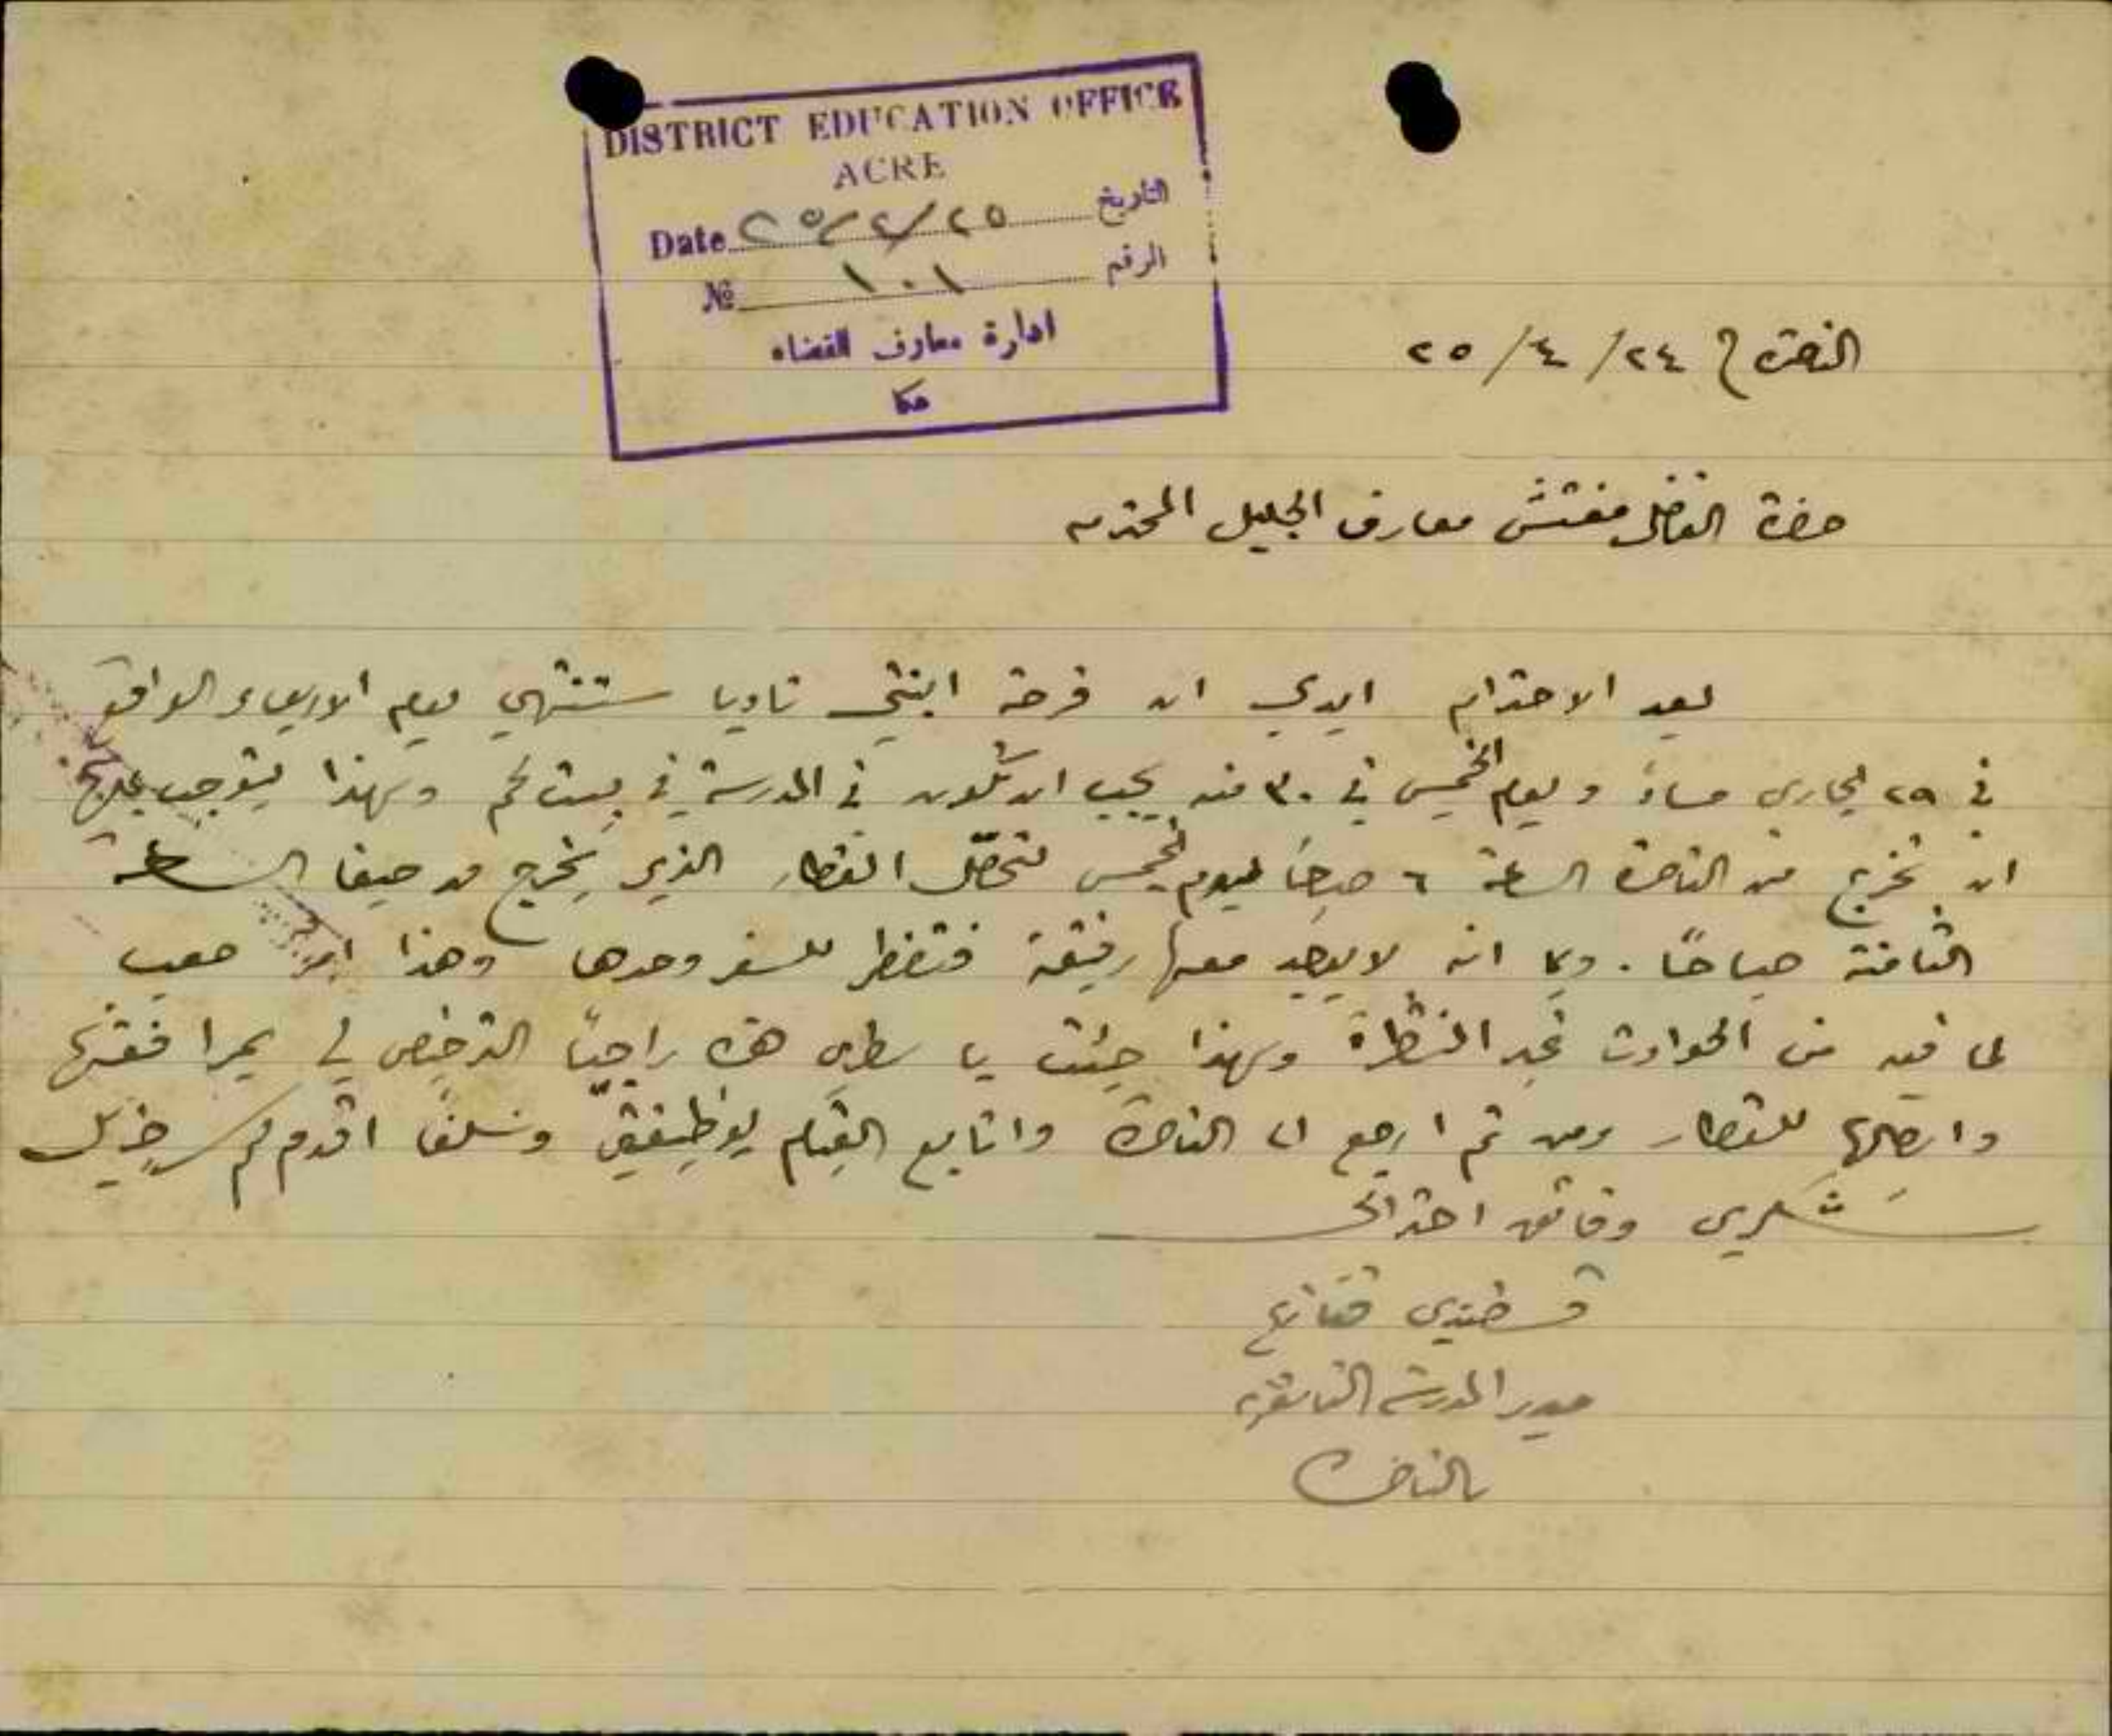 DISTRICT EDUCATION OFFICE
ACRE
Date ٢٥/٤/٢٥ التاريخ
№ ١٠١ الرقم
ادارة معارف القضاء
عكا
الناصرة في ٢٤/٤/٢٥
حضرة الفاضل مفتش معارف الجليل المحترم
بعد الاحترام ابدي ان فرصة ابنتي ناديا ستنتهي يوم الاربعاء الواقع
في ٢٩ الجاري مساءً ويوم الخميس في ٣٠ منه يجب ان تكون في المدرسة في بيت لحم ولهذا يتوجب عليها
ان تخرج من الناصرة الساعة ٦ صباحًا ليوم الخميس لتحصّل القطار الذي يخرج من حيفا الساعة
الثامنة صباحًا. وبما انه لا يوجد معها رفيقة فتضطر للسفر وحدها وهذا امرٌ صعب
لما فيه من الحوادث غير المنتظرة ولهذا جئت بأسطري هذه راجيًا الترخيص لي بمرافقتها
وايصالها للقطار ومن ثم ارجع الى الناصرة واتابع القيام بوظيفتي وسلفًا اقدم لكم جزيل
شكري وفائق احترامي
قسطندي قنازع
مدير المدرسة الثانوية
بالناصرة